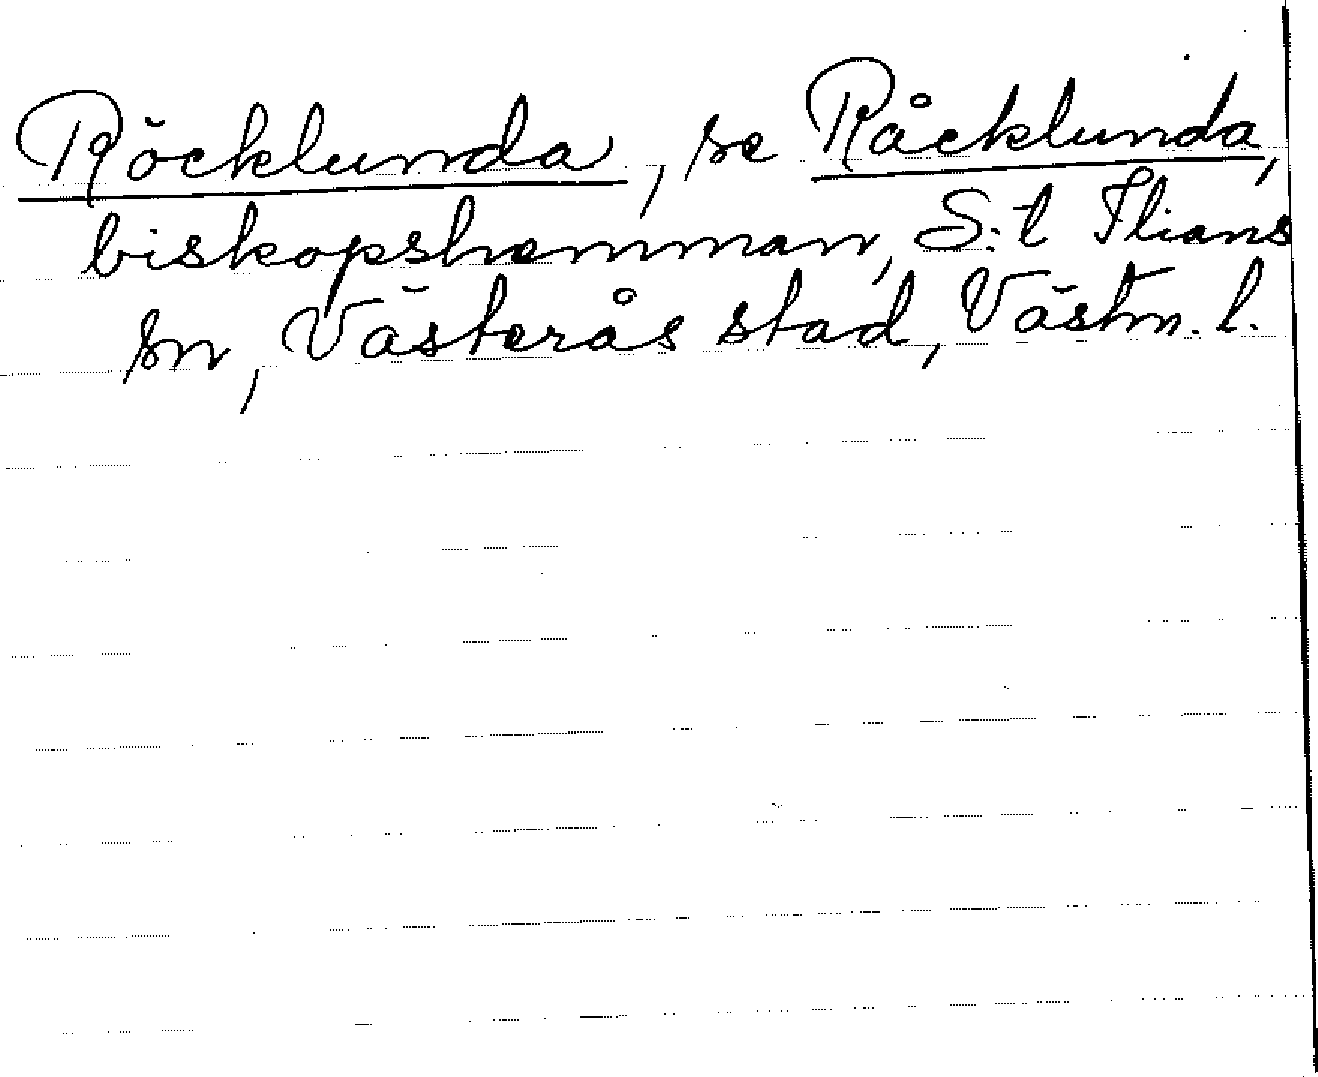 Röcklunda, se Råcklunda,
biskopshemman, S:t Ilians
sn, Västerås stad, Västm. l.